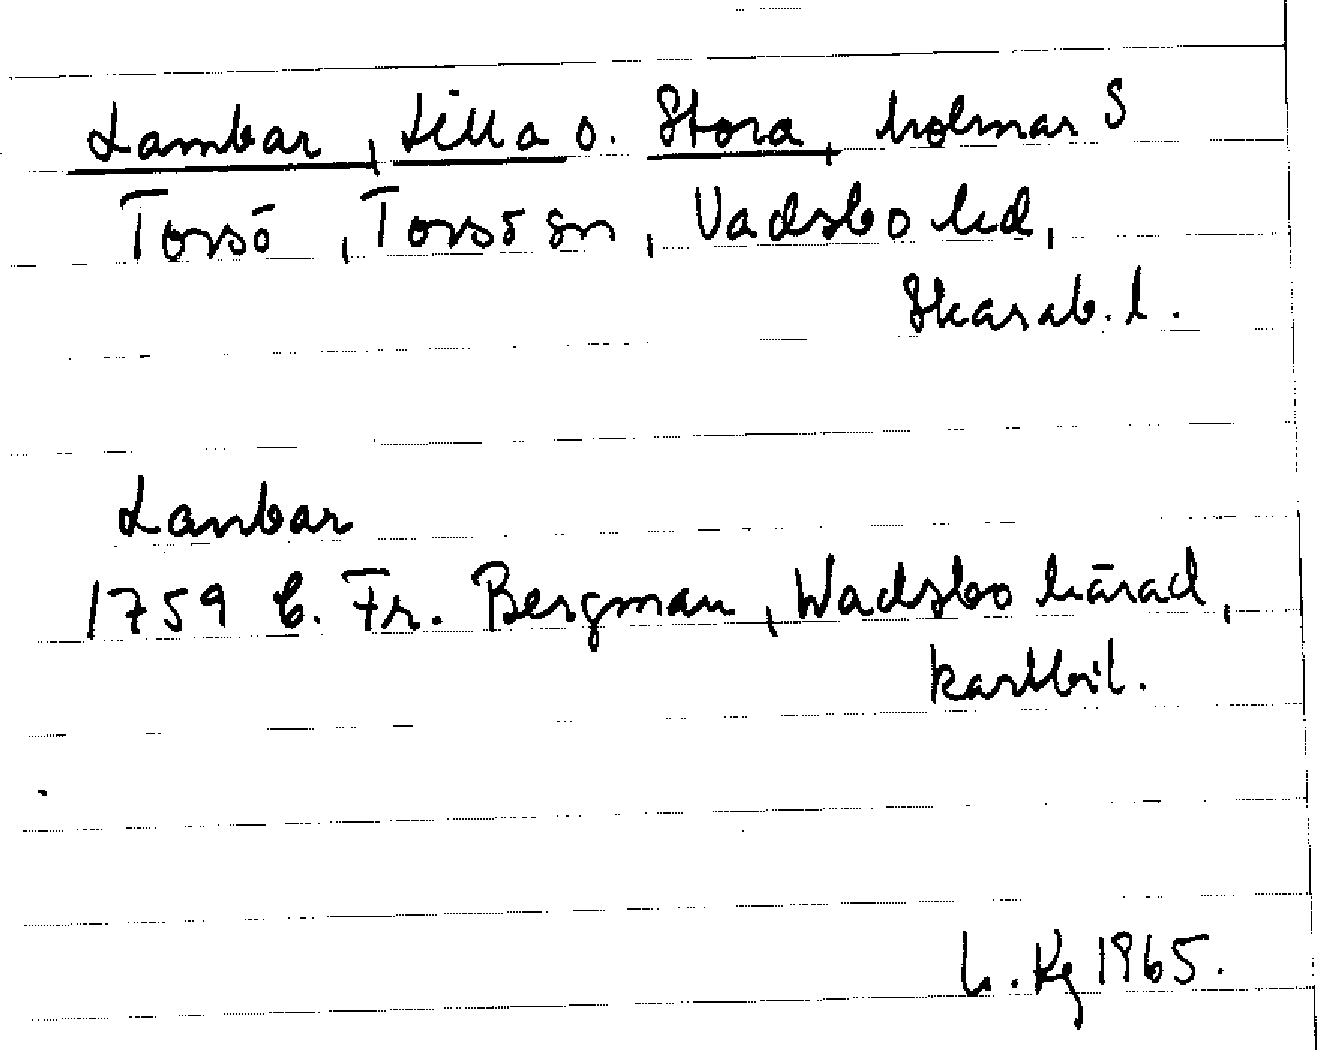 Lambar, Lilla o. Stora, holmar S
Torsö, Torsö sn, Vadsbo hd,
Skarab. l.
Lanbar
1759 C. Fr. Bergman, Wadsbo härad,
kartbil.
L. Kg 1965.